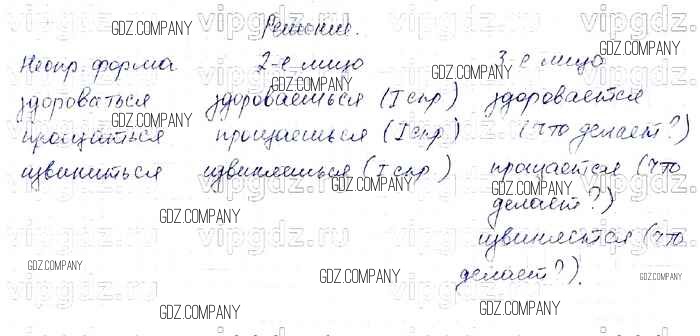 Решение.
Неопр. форма 2-е лицо 3-е лицо
здороваться здороваешься (I спр) здоровается
прощаться прощаешься (I спр) (что делает?)
извиниться извиняешься (I спр) прощается (что
делает?)
извиняется (что
делает?).
GDZ.COMPANY
GDZ.COMPANY
GDZ.COMPANY
GDZ.COMPANY
GDZ.COMPANY
GDZ.COMPANY
GDZ.COMPANY
GDZ.COMPANY
GDZ.COMPANY
GDZ.COMPANY
GDZ.COMPANY
GDZ.COMPANY
GDZ.COMPANY
GDZ.COMPANY
vipgdz.ru
vipgdz.ru
vipgdz.ru